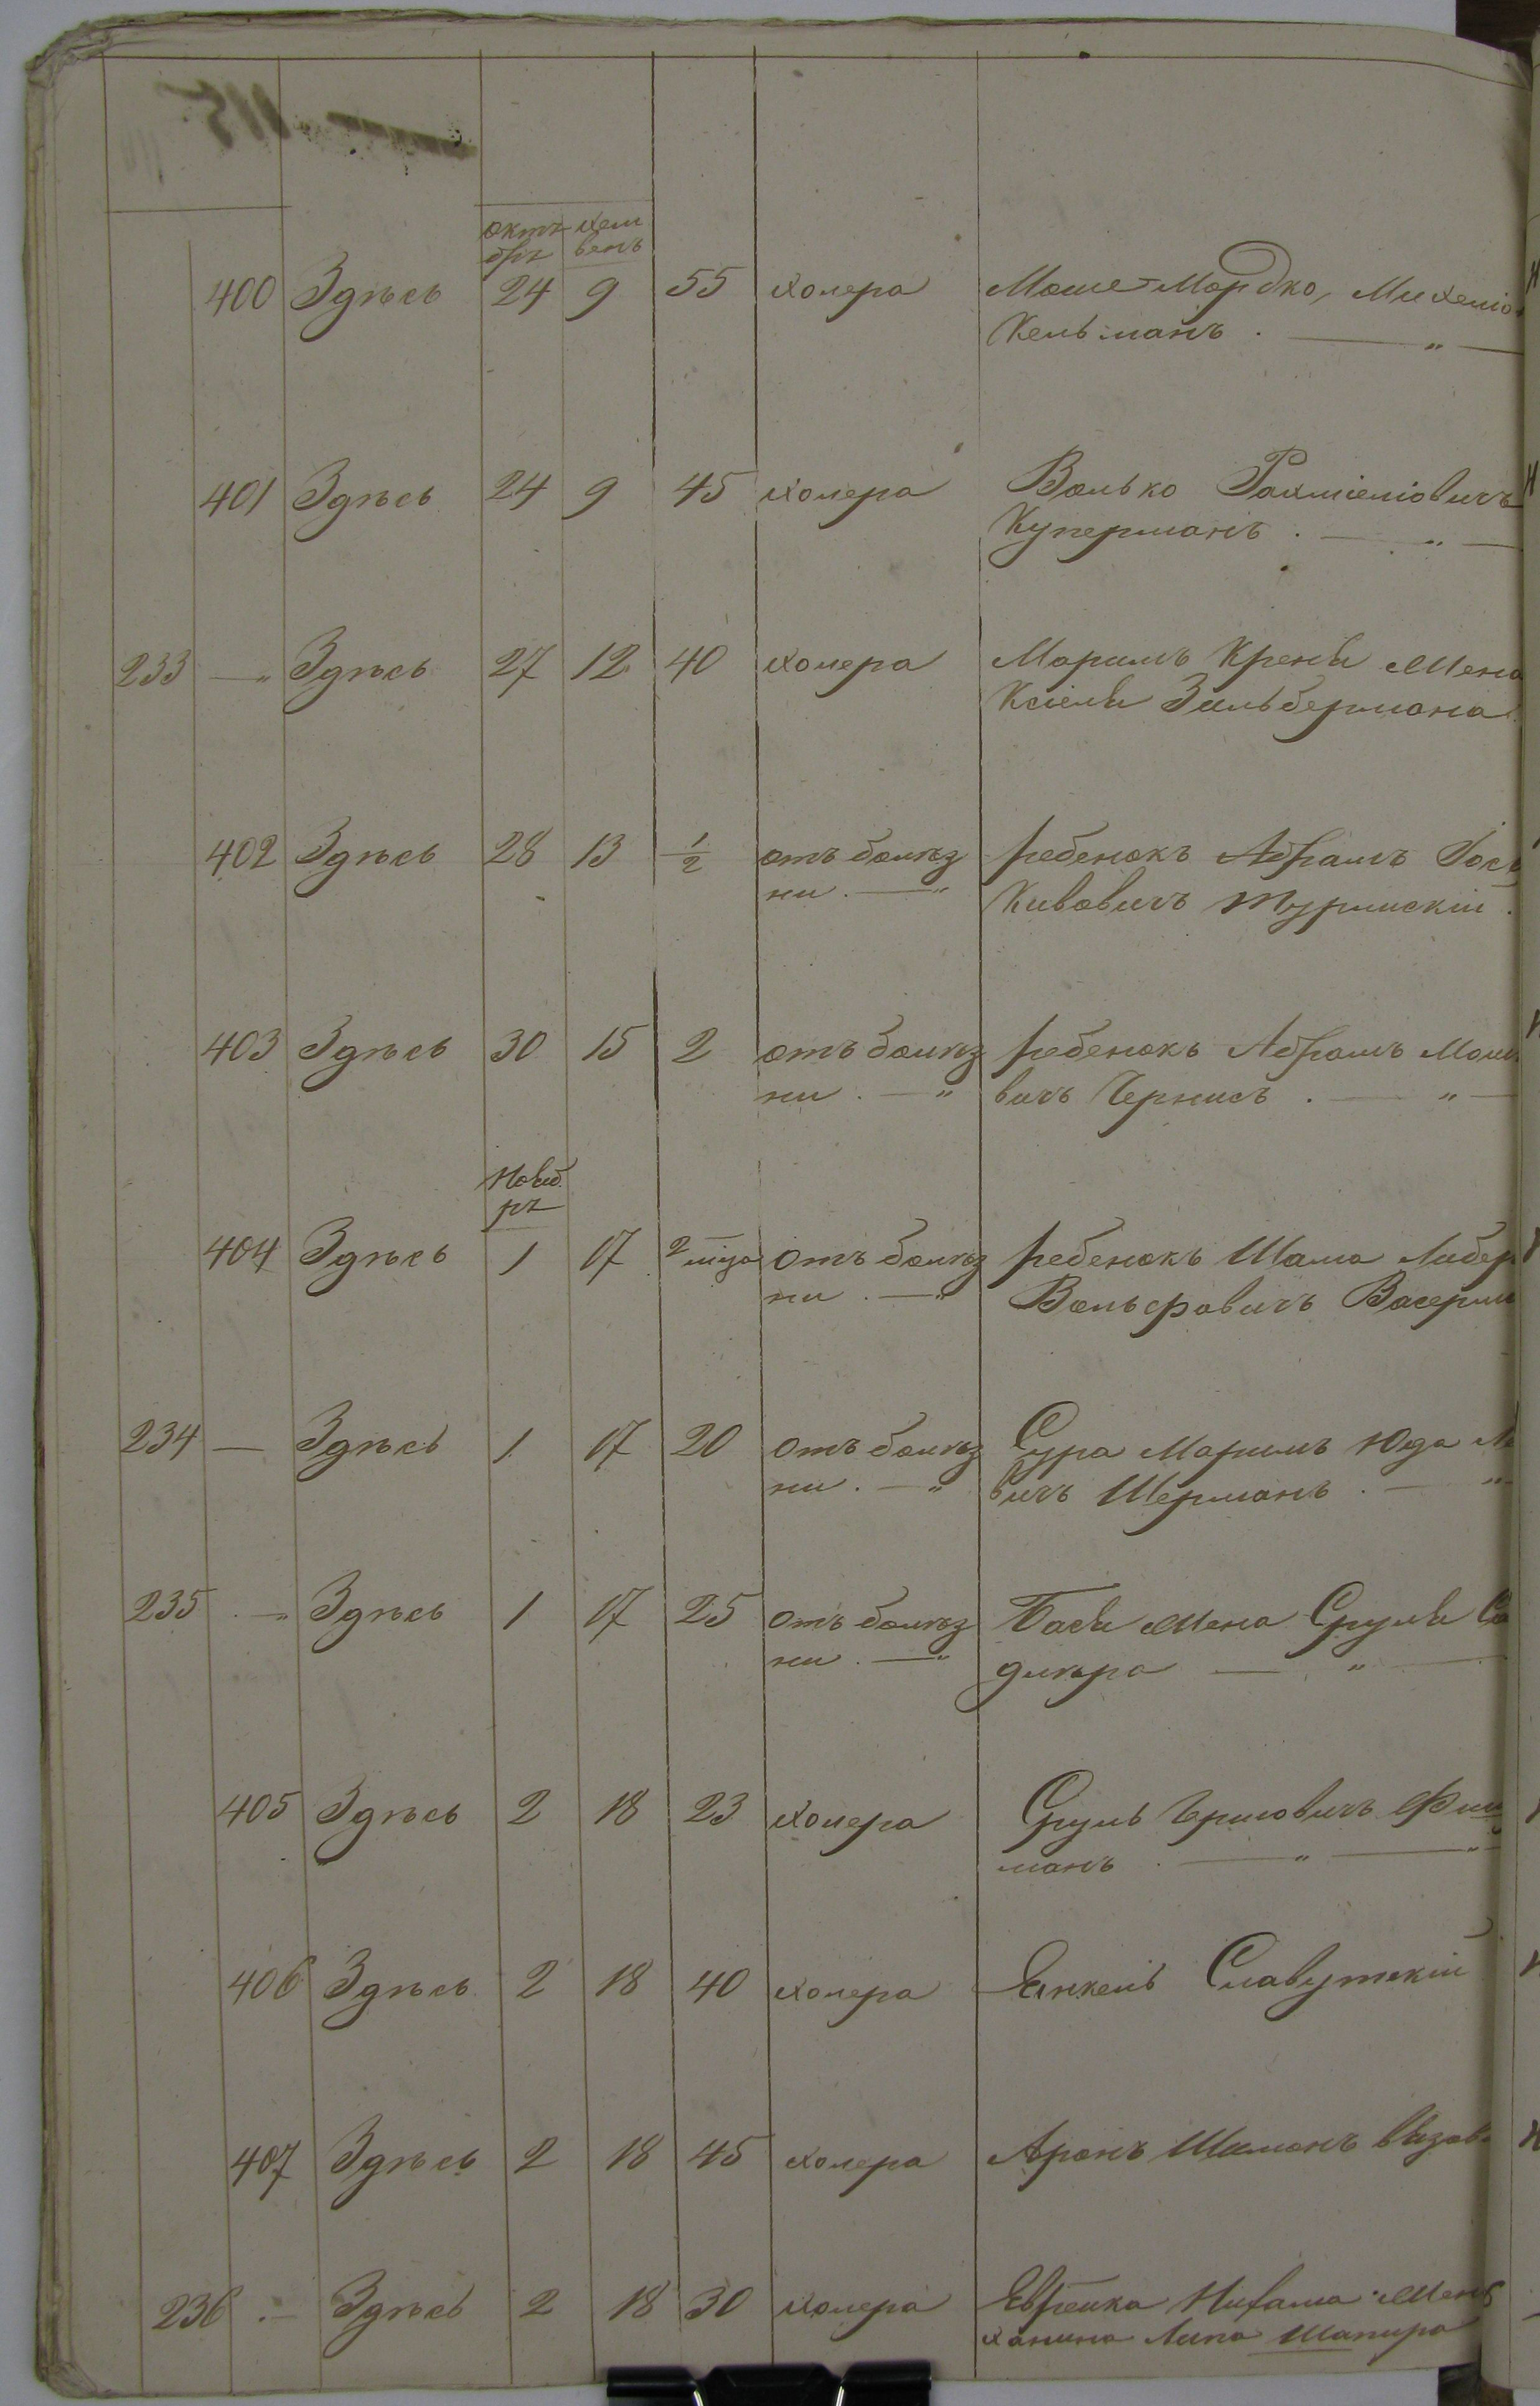 115
октя хеш
брь венъ
400 Здѣсь 24 9 55 холера Моше Мордко, Михеліо
Кельманъ . — „ —
401 Здѣсь 24 9 45 холера Волько Рахміеліовичъ
Куперманъ . — „ —
233 — „ Здѣсь 27 12 40 холера Маримъ Крени жена
Ксіеля Зильбермана
402 Здѣсь 28 13 1/2 отъ болѣз ребенокъ Абрамъ Іось
ни . — „ Кивовичъ Турлискій .
403 Здѣсь 30 15 2 отъ болѣз ребенокъ Абрамъ Мош
ни . — „ вичъ Чернисъ . — „ —
Нояб
рь
404 Здѣсь 1 17 2 мѣца отъ болѣз ребенокъ Шама Либер
ни . — „ Вольфовичъ Васерм
234 — Здѣсь 1 17 20 отъ болѣз Сура Маримъ Юда Ле
ни . — „ вичъ Шерманъ . — „
235 . — „ Здѣсь 1 17 25 отъ болѣз Бася жена Сруля Са
ни . — „ длѣра — „ —
405 Здѣсь 2 18 23 холера Сруль Гершовичъ Фиш
манъ . — „ — „
406 Здѣсь 2 18 40 холера Янкель Славутскій
407 Здѣсь 2 18 45 холера Аронъ Шимонъ
236 . — Здѣсь 2 18 30 холера Еврейка Нихама жена
ханина Липа Шапира